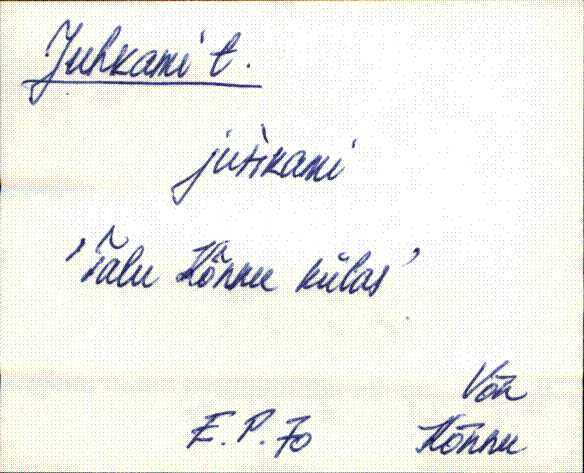 Juhkami t.
juhkami
'Talu Kõnnu külas'
Võn
E. P. 70 Kõnnu